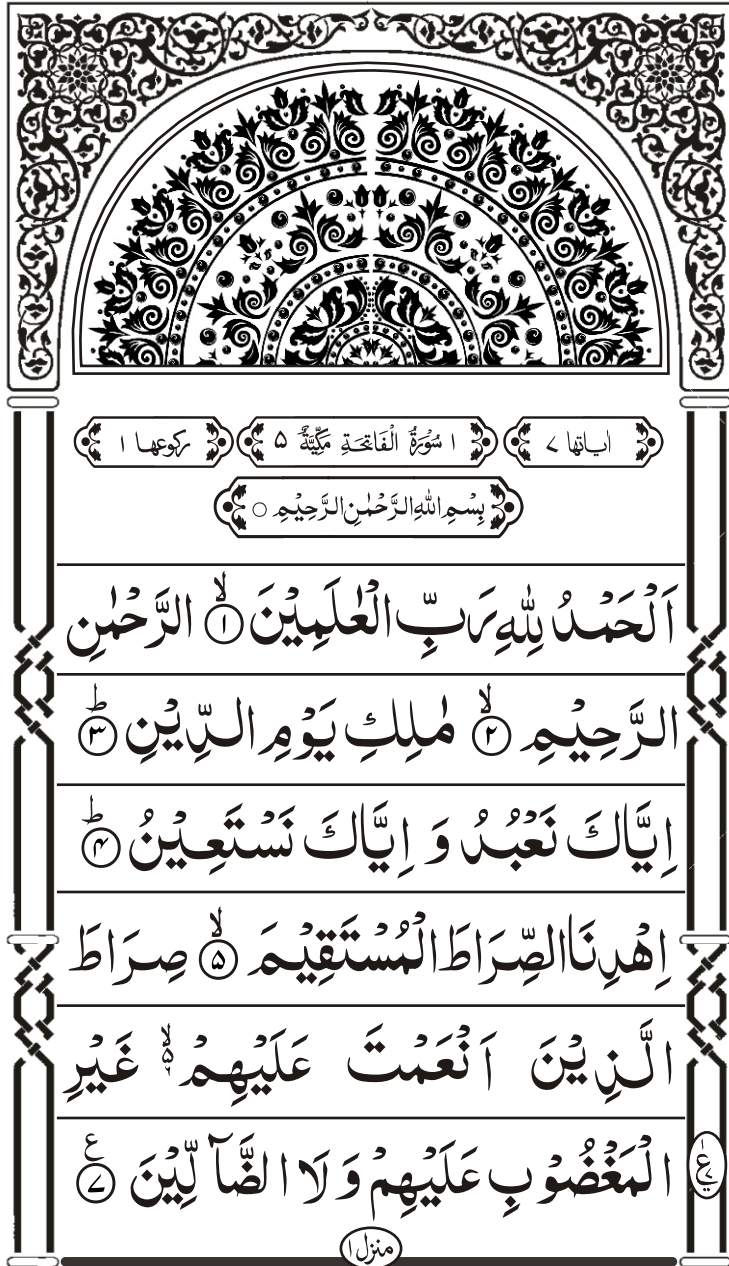 اٰیاتها ۷
۱ سُوْرَةُ الْفَاتِحَةِ مَكِّيَّةٌ ۵
ركوعها ۱
بِسْمِ اللّٰهِ الرَّحْمٰنِ الرَّحِيْمِ ○
اَلْحَمْدُ لِلّٰهِ رَبِّ الْعٰلَمِيْنَ ۙ﴿۱﴾ الرَّحْمٰنِ
الرَّحِيْمِ ۙ﴿۲﴾ مٰلِكِ يَوْمِ الدِّيْنِ ؕ﴿۳﴾
اِيَّاكَ نَعْبُدُ وَ اِيَّاكَ نَسْتَعِيْنُ ؕ﴿۴﴾
اِهْدِنَا الصِّرَاطَ الْمُسْتَقِيْمَ ۙ﴿۵﴾ صِرَاطَ
الَّذِيْنَ اَنْعَمْتَ عَلَيْهِمْ ۙ۵ ۬ غَيْرِ
الْمَغْضُوْبِ عَلَيْهِمْ وَ لَا الضَّآلِّيْنَ ﴿۷﴾ ع
ع
منزل ۱